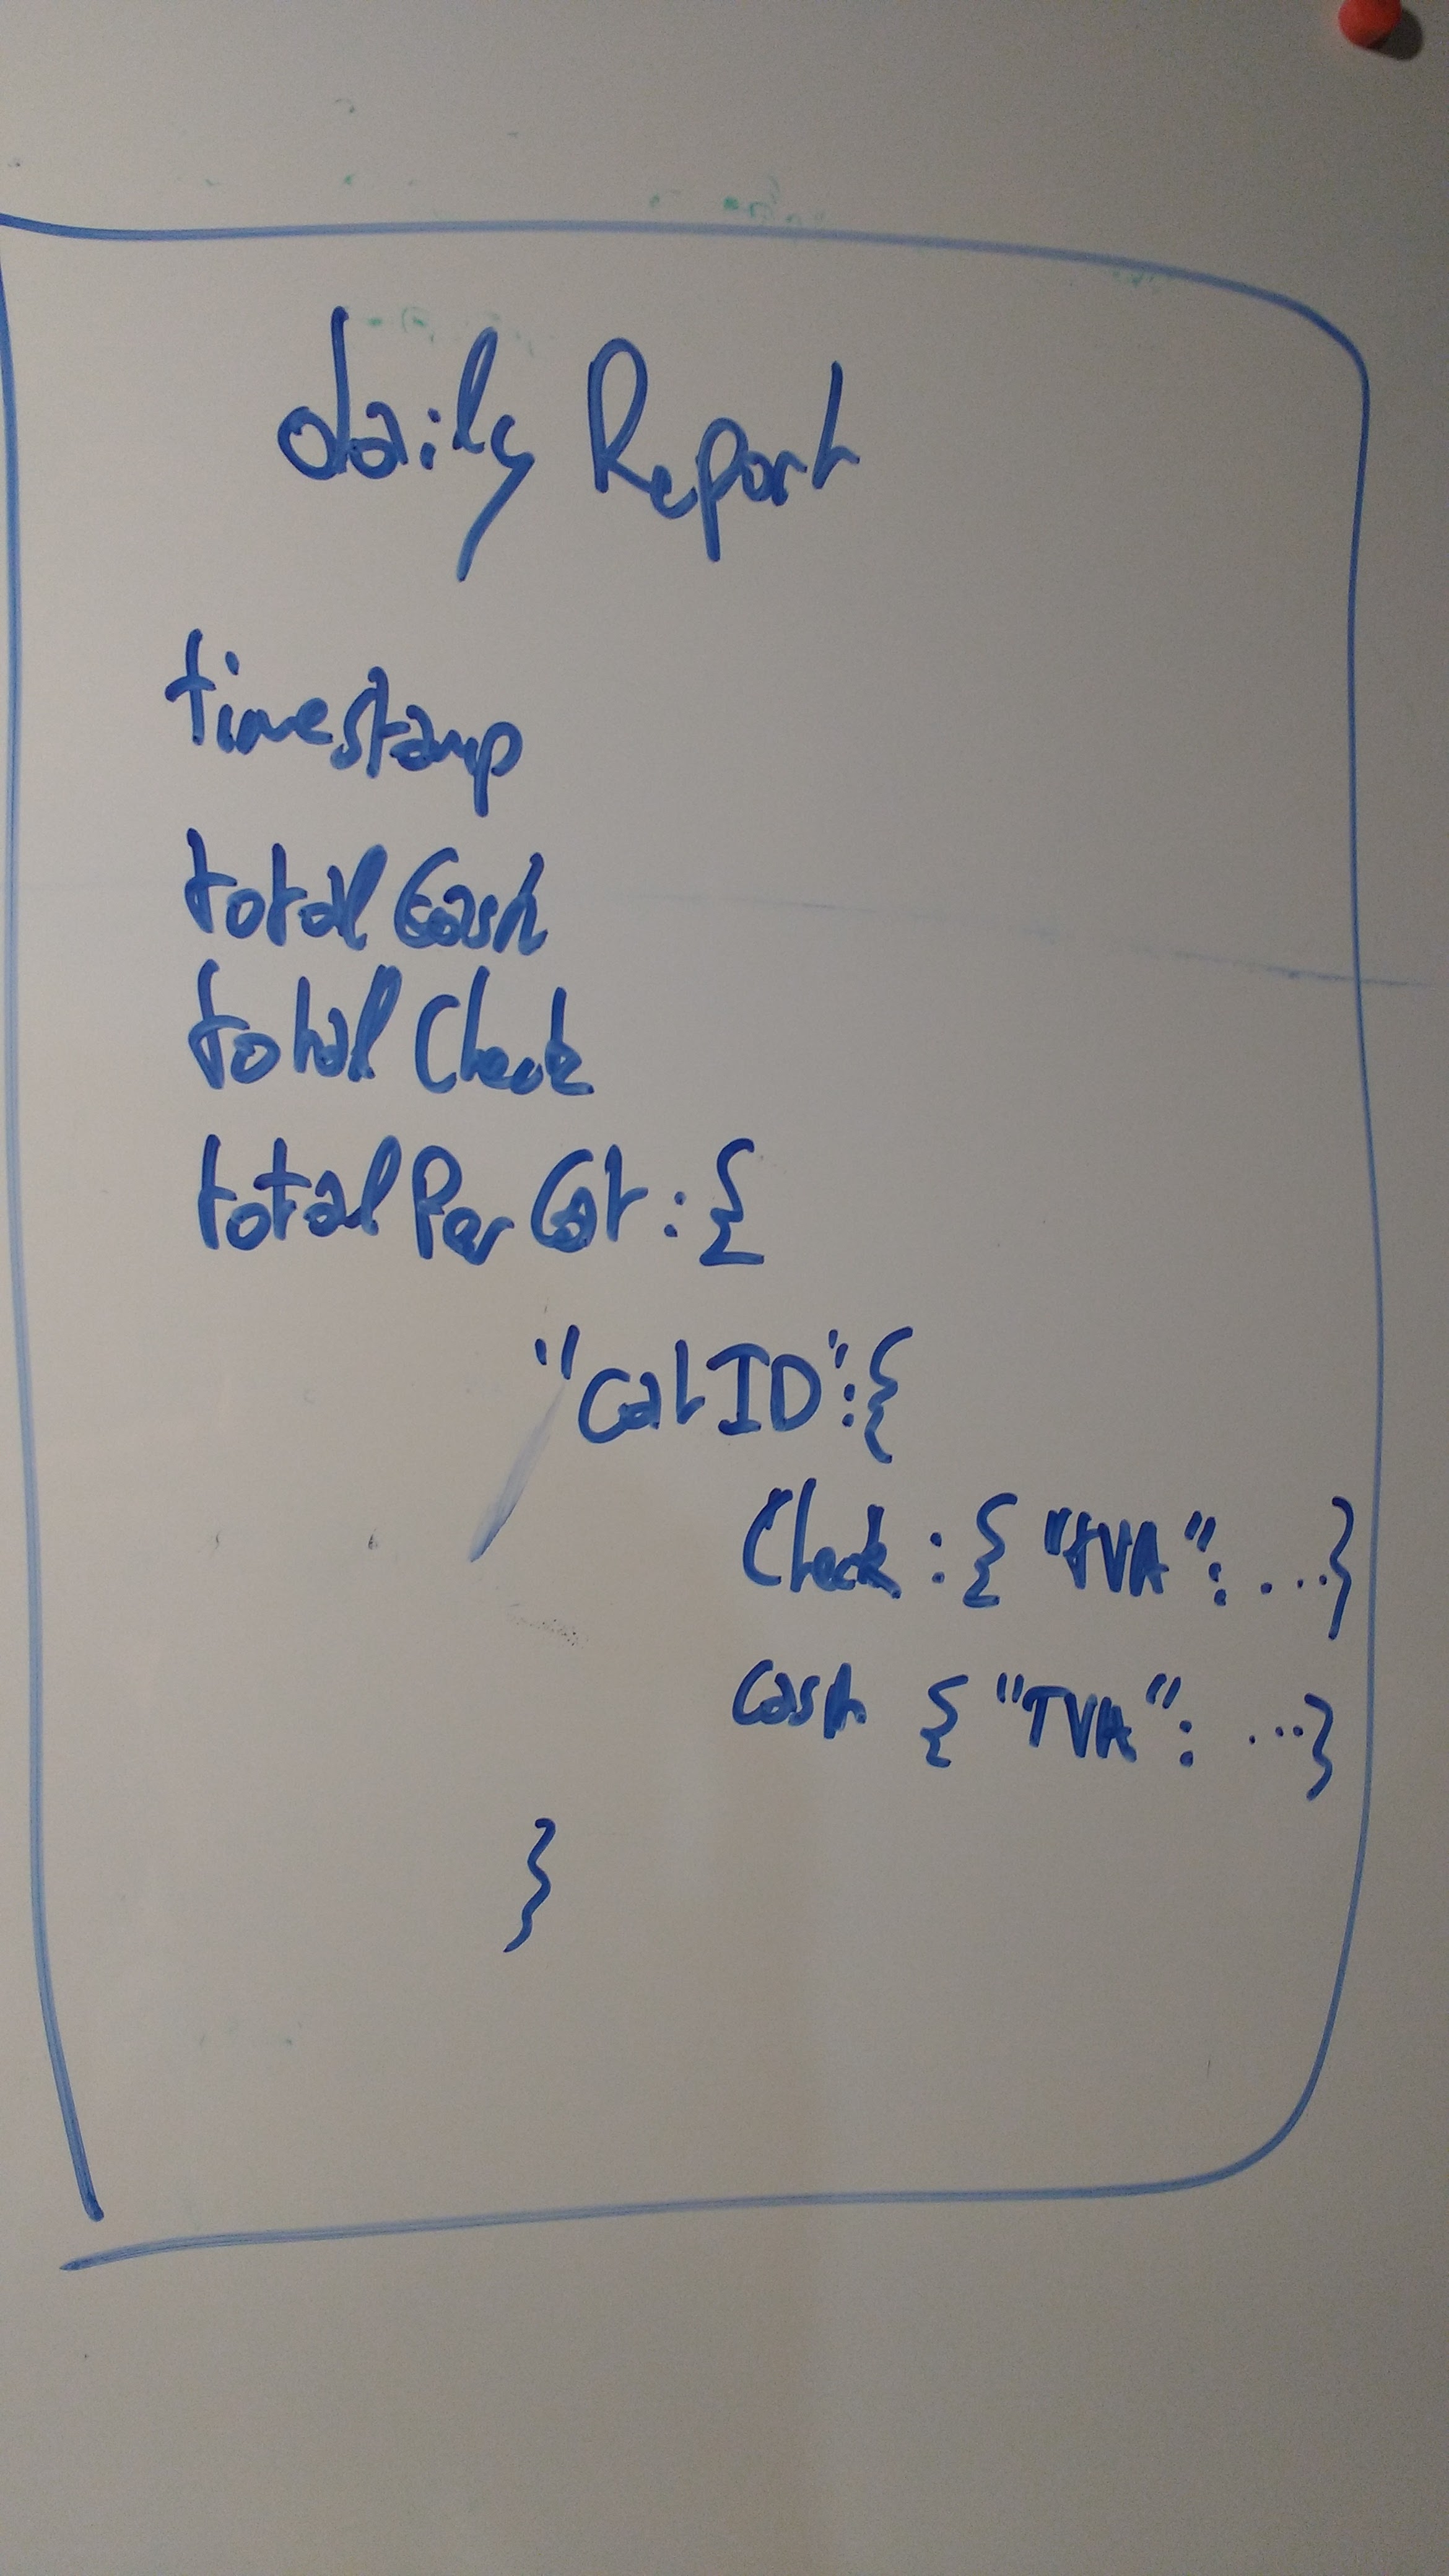 daily Report
timestamp
total Cash
total Check
total Per Cat : {
"Cat ID" : {
Check : { "TVA" : ... }
Cash { "TVA" : ... }
}